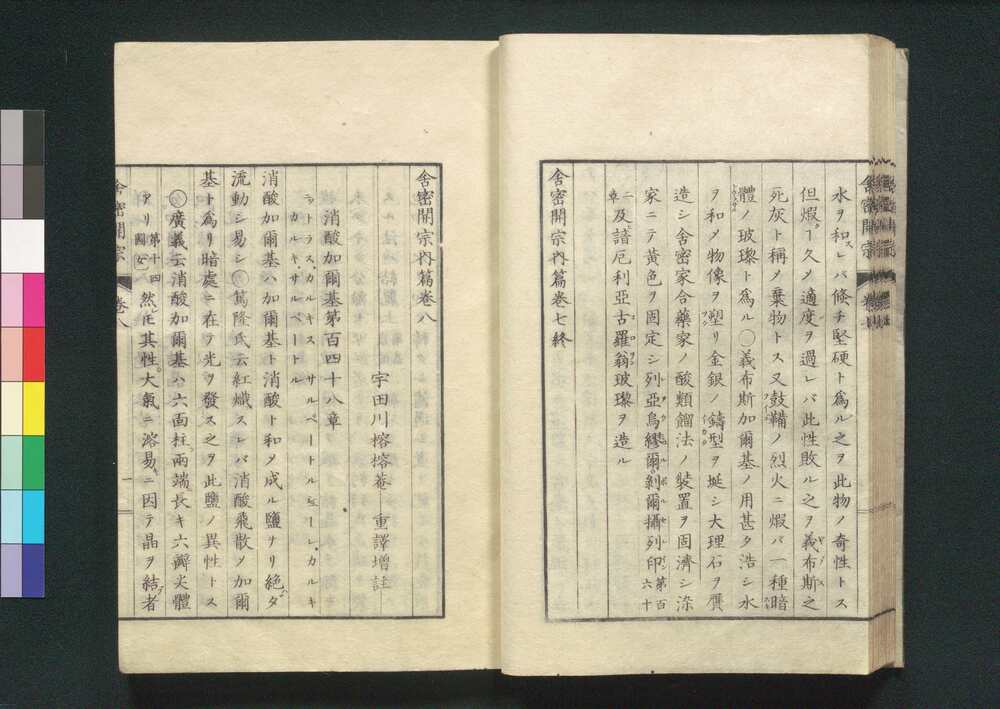 水ヲ和スレバ倏チ堅硬ト爲ル之ヲ此物ノ奇性トス
但煆ー久メ適度ヲ過レバ此性敗ル之ヲ義布斯之
死灰ト稱メ棄物トス又鼓鞴ノ烈火ニ煆バ一種暗
體ノ玻瓈ト爲ル〇義布斯加爾基ノ用甚タ浩シ水
ヲ和メ物像ヲ塑リ金銀ノ鑄型ヲ埏シ大理石ヲ贋
造シ舍密家合藥家ノ酸類餾法ノ裝置ヲ固濟シ染
家ニテ黃色ヲ固定シ列亞烏繆爾剝爾攝列印第百六十
二章及諸厄利亞古羅翁玻瓈ヲ造ル
舍密開宗內篇卷七終
舍密開宗內篇卷八
宇田川榕榕菴 重譯增註
消酸加爾基第百四十八章
ニトラスカルキス サルペートルセーレカルキ
カルキサルペートル
消酸加爾基ハ加爾基ト消酸ト和メ成ル鹽ナリ絶タ
流動シ易シ〇篤隆氏云紅熾スレバ消酸飛散メ加爾
基ト爲リ暗處ニ在テ光ヲ發ス之ヲ此鹽ノ異性トス
〇廣義云消酸加爾基ハ六面柱兩端長キ六瓣尖體
アリ第十四圖女然ㇾ𪜈其性大氣ニ溶易キニ因テ晶ヲ結者
舍密開宗 卷八 一